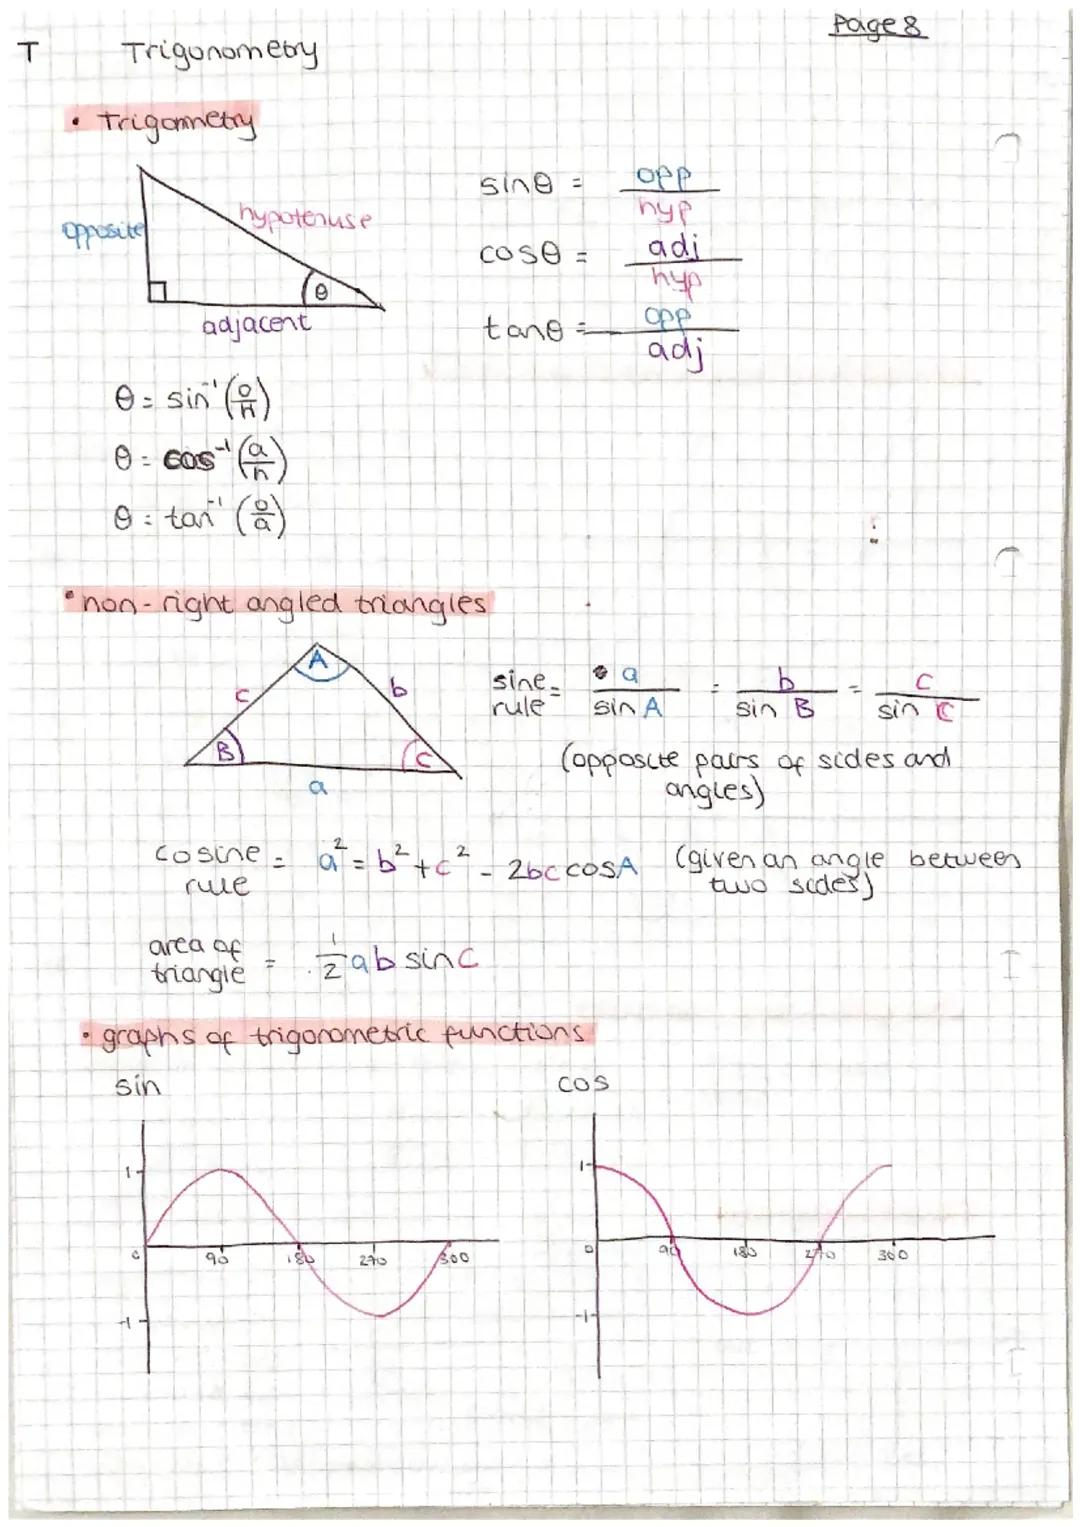 Page 8
T Trigonometry
• Trigonmetry
opposite
hypotenuse
θ
adjacent
sinθ = opp/hyp
cosθ = adj/hyp
tanθ = opp/adj
θ = sin⁻¹(o/h)
θ = cos⁻¹(a/h)
θ = tan⁻¹(o/a)
• non-right angled triangles
A
c
b
B
C
a
sine rule = a/sin A = b/sin B = c/sin C
(opposite pairs of sides and
angles)
cosine rule = a² = b² + c² - 2bc cosA (given an angle between
two sides)
area of triangle = 1/2 ab sinC
• graphs of trigonometric functions
sin
cos
1
0
90
180
270
360
-1
1
0
90
180
270
360
-1